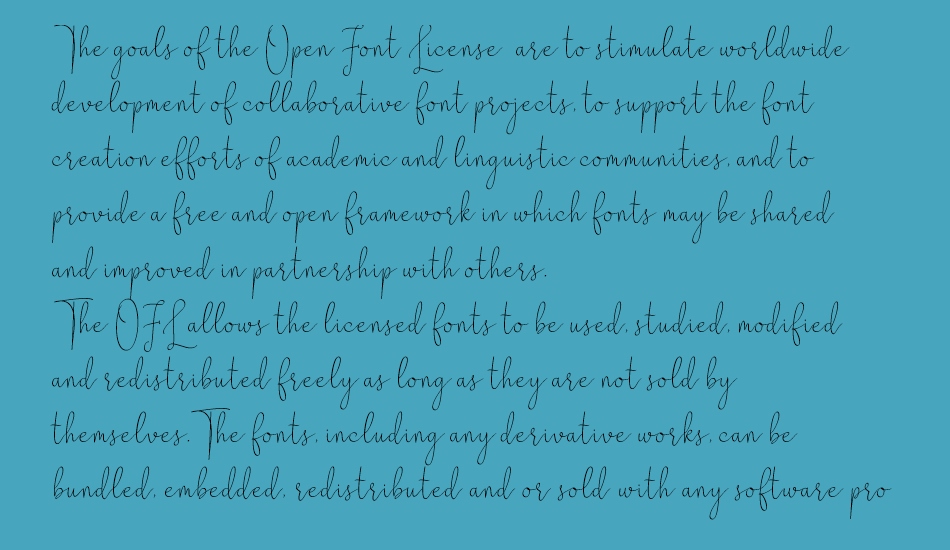 The goals of the Open Font License are to stimulate worldwide
development of collaborative font projects, to support the font
creation efforts of academic and linguistic communities, and to
provide a free and open framework in which fonts may be shared
and improved in partnership with others.
The OFL allows the licensed fonts to be used, studied, modified
and redistributed freely as long as they are not sold by
themselves. The fonts, including any derivative works, can be
bundled, embedded, redistributed and or sold with any software pro